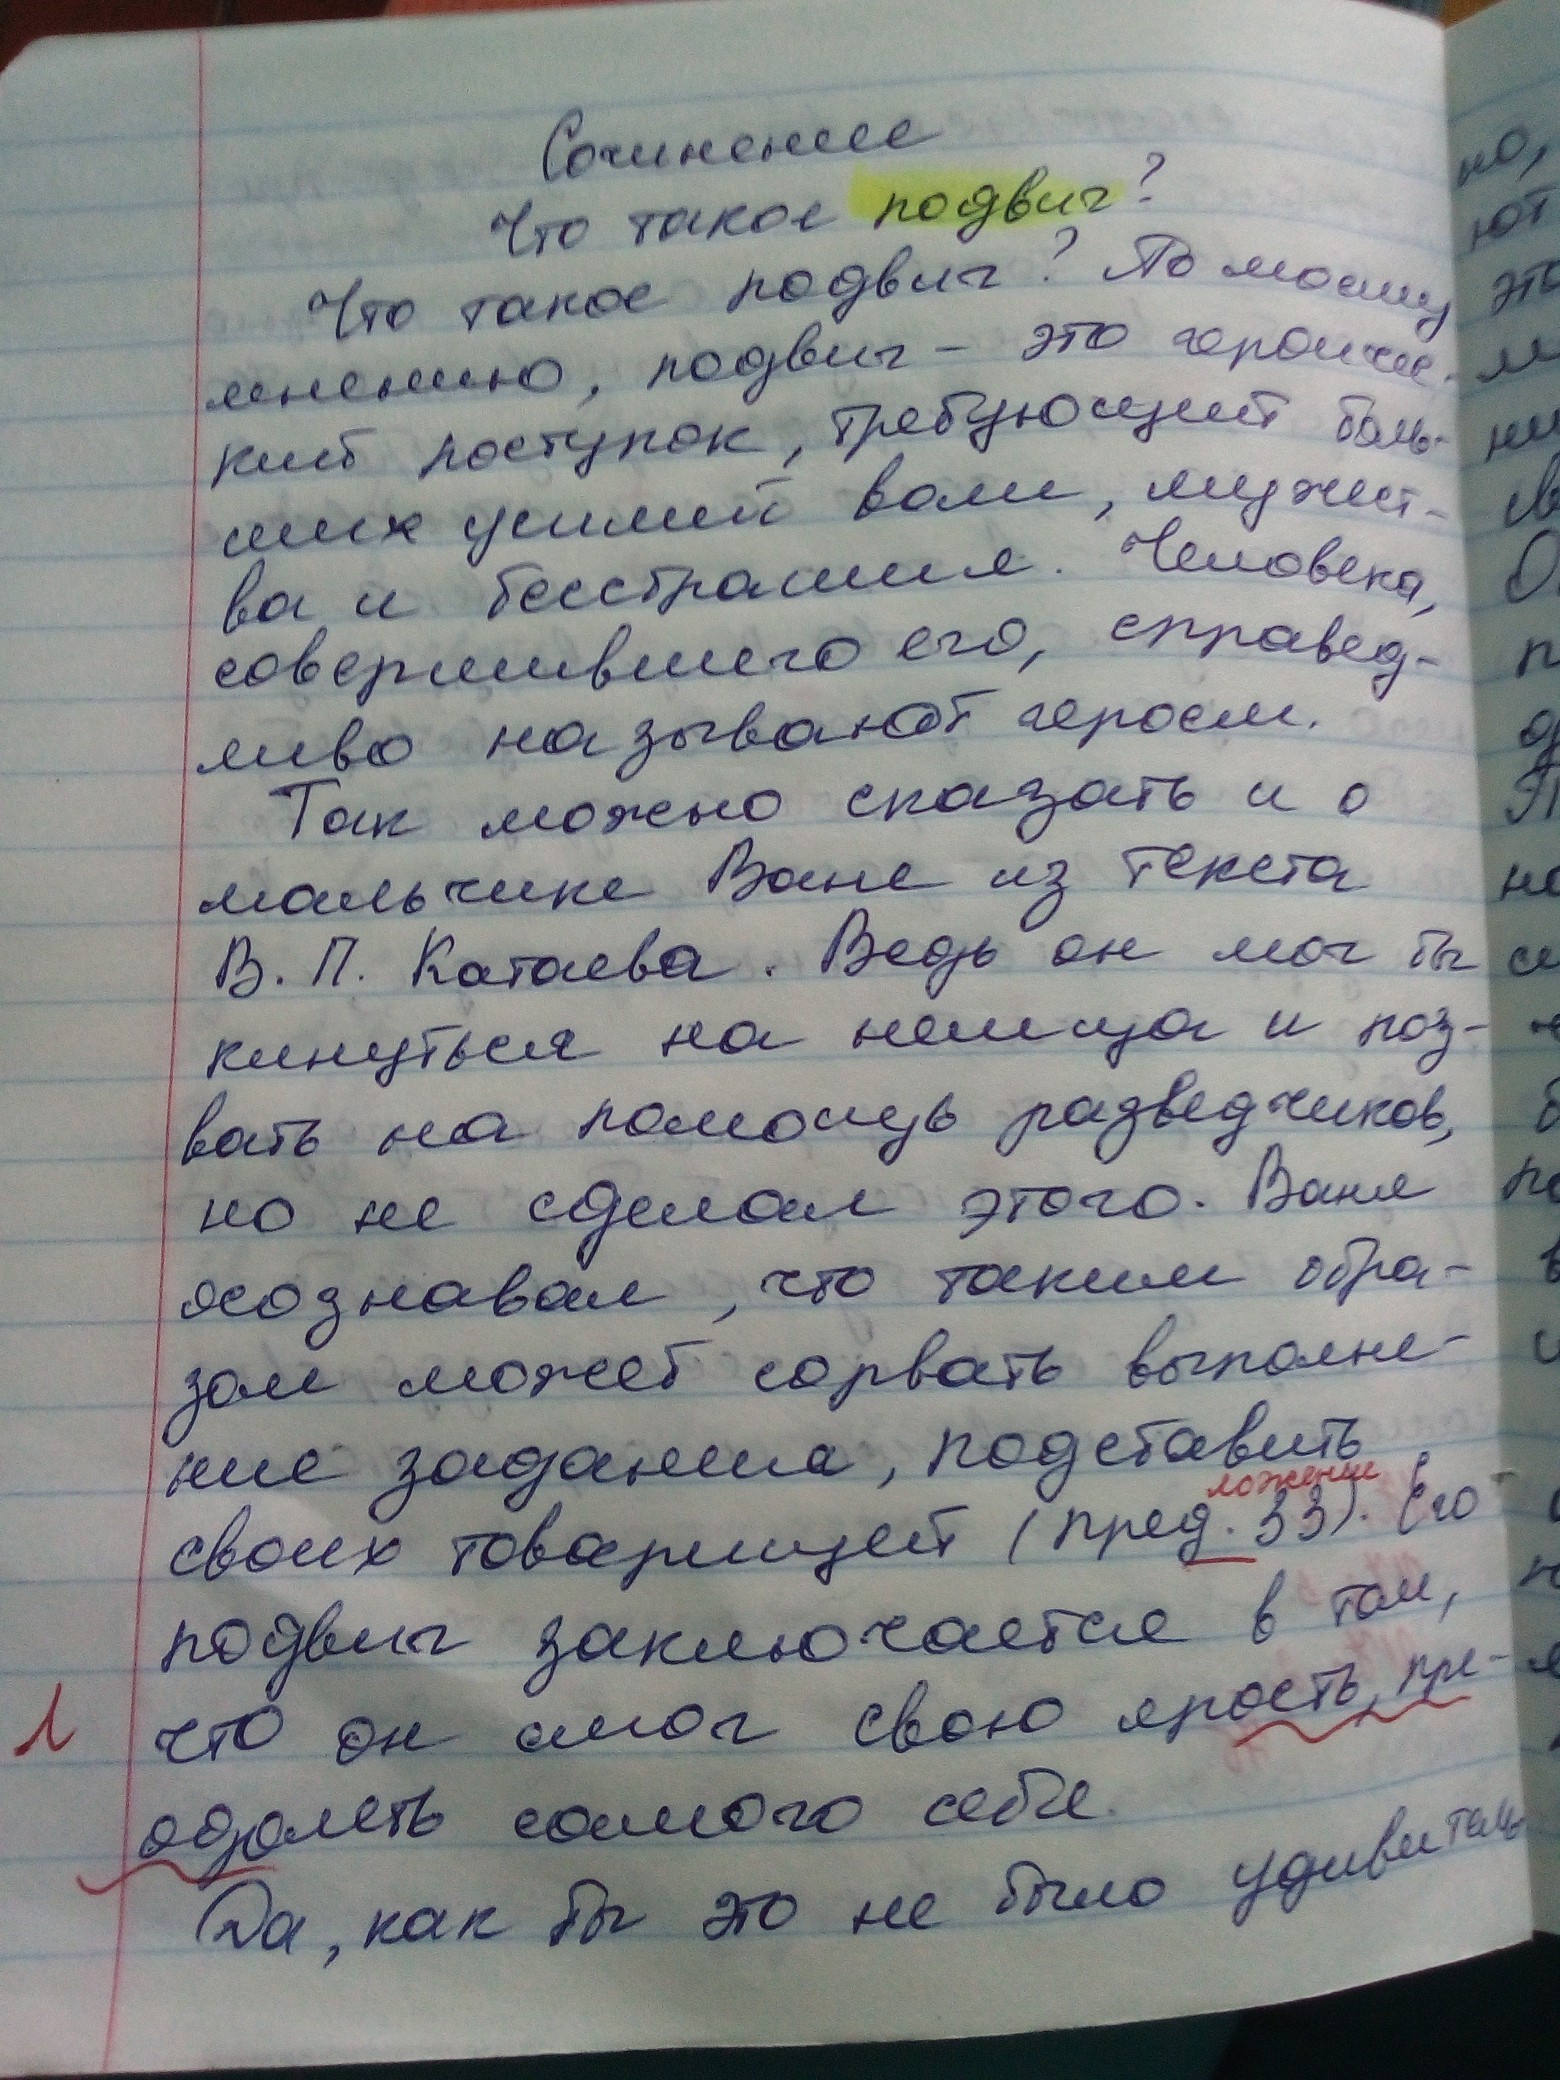 Сочинение
Что такое подвиг?
Что такое подвиг? По моему
мнению, подвиг - это героичес-
кий поступок, требующий боль-
ших усилий воли, мужест-
ва и бесстрашия. Человека,
совершившего его, справед-
ливо называют героем.
Так можно сказать и о
мальчике Ване из текста
В. П. Катаева. Ведь он мог бы
кинуться на немца и поз-
вать на помощь разведчиков,
но не сделал этого. Ваня
осознавал, что таким обра-
зом может сорвать выполне-
ние задания, подставить
ложение
своих товарищей (пред. 33). Его
подвиг заключается в том,
л что он смог свою ярость, пре-
одолеть самого себя.
Да, как бы это не было удивитель